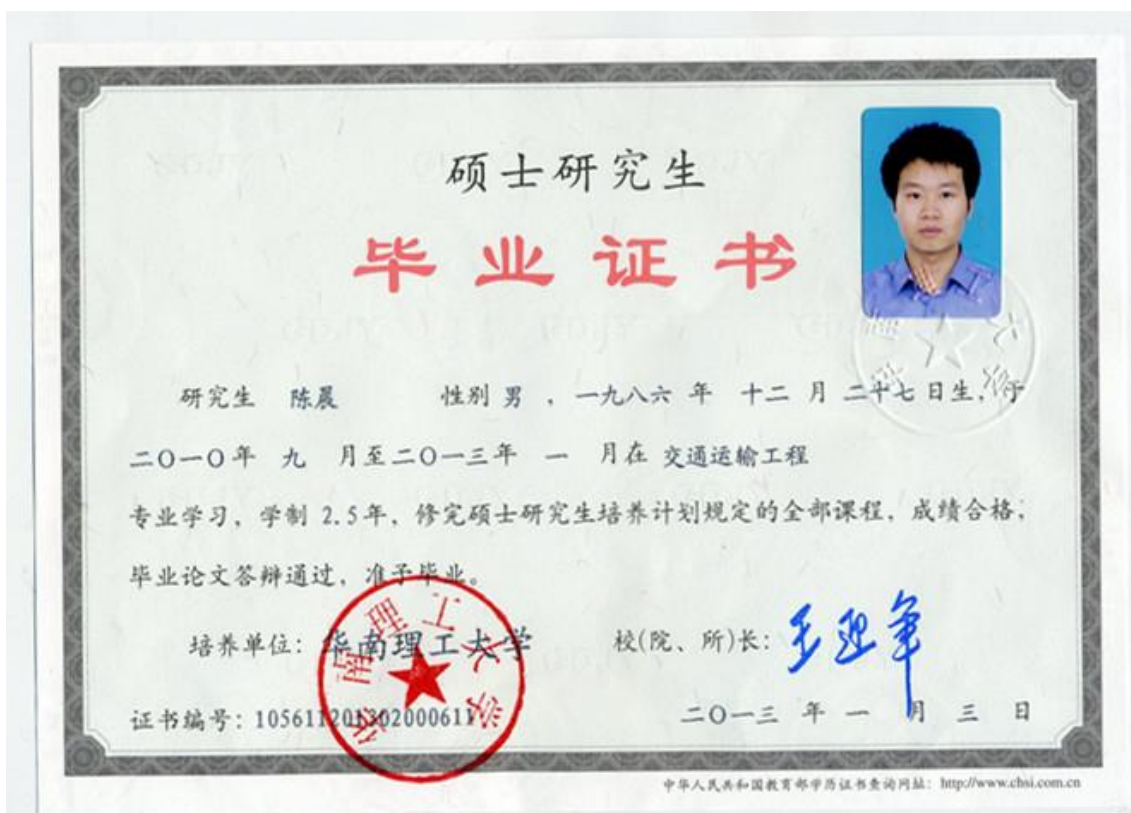 硕士研究生
毕业证书
研究生 陈晨 性别 男 ，一九八六 年 十二 月 二十七 日生，于
二〇一〇年 九 月至二〇一三年 一 月在 交通运输工程
专业学习，学制 2.5年，修完硕士研究生培养计划规定的全部课程，成绩合格，
毕业论文答辩通过，准予毕业。
培养单位：华南理工大学 校(院、所)长：王迎军
华南理工大学
证书编号：105611201302000611 二〇一三 年 一 月 三 日
中华人民共和国教育部学历证书查询网址：http://www.chsi.com.cn